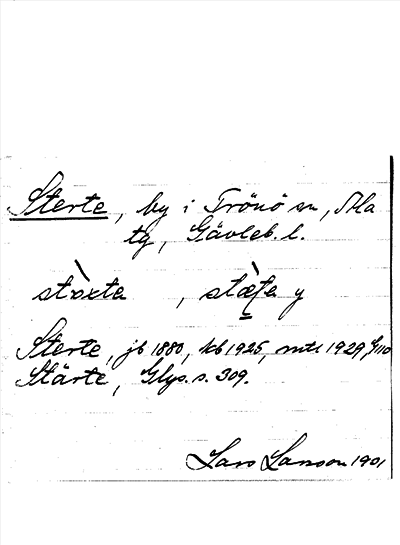 Sterte, by i Trönö sn, Ala
tg, Gävleb. l.
stæ̀xta, stæ̀ʃa y
Sterte, jb 1880, kb 1925, mtl 1929 § 110
Stärte, Glys. s. 309.
Lars Larsson 1901